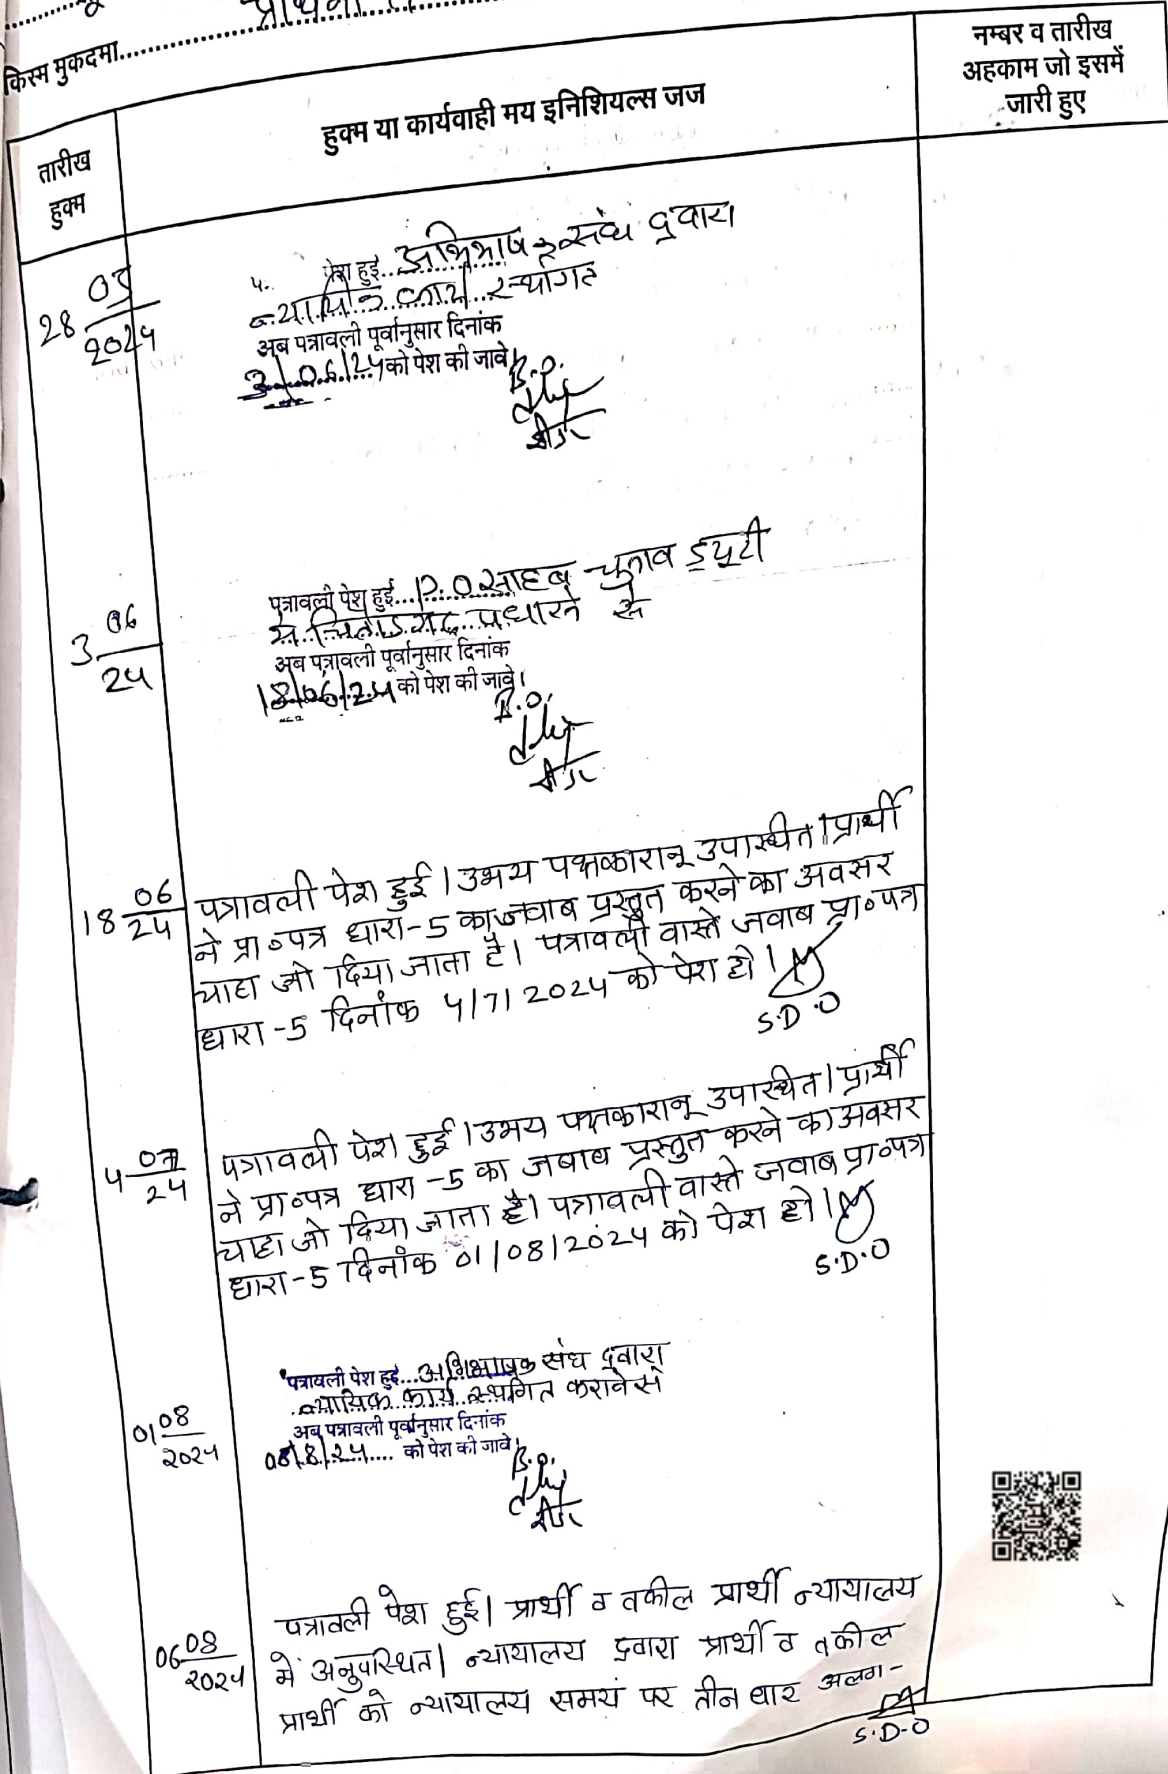 किस्म मुकदमा
नम्बर व तारीख
अहकाम जो इसमें
जारी हुए
हुक्म या कार्यवाही मय इनिशियल्स जज
तारीख
हुक्म
28 05/2024
पेश हुई... अभिभाषक संघ द्वारा
न्यायिक कार्य स्थगित
अब पत्रावली पूर्वानुसार दिनांक
3/06/24 को पेश की जावे।
3 06/24
पत्रावली पेश हुई... P.O साहब चुनाव ड्यूटी
पधारने से
अब पत्रावली पूर्वानुसार दिनांक
18/06/24 को पेश की जावे।
18 06/24
पत्रावली पेश हुई। उभय पक्षकारान् उपस्थित। प्रार्थी
ने प्रा०पत्र धारा-5 का जवाब प्रस्तुत करने का अवसर
चाहा जो दिया जाता है। पत्रावली वास्ते जवाब प्रा०पत्र
धारा-5 दिनांक 4/7/2024 को पेश हो।
S.D.O
4 07/24
पत्रावली पेश हुई। उभय पक्षकारान् उपस्थित। प्रार्थी
ने प्रा०पत्र धारा-5 का जवाब प्रस्तुत करने का अवसर
चाहा जो दिया जाता है। पत्रावली वास्ते जवाब प्रा०पत्र
धारा-5 दिनांक 01/08/2024 को पेश हो।
S.D.O
01 08/2024
पत्रावली पेश हुई... अभिभाषक संघ द्वारा
न्यायिक कार्य स्थगित कराने से
अब पत्रावली पूर्वानुसार दिनांक
को पेश की जावे।
06 08/2024
पत्रावली पेश हुई। प्रार्थी व वकील प्रार्थी न्यायालय
में अनुपस्थित। न्यायालय द्वारा प्रार्थी व वकील
प्रार्थी को न्यायालय समय पर तीन बार अलग-
S.D.O